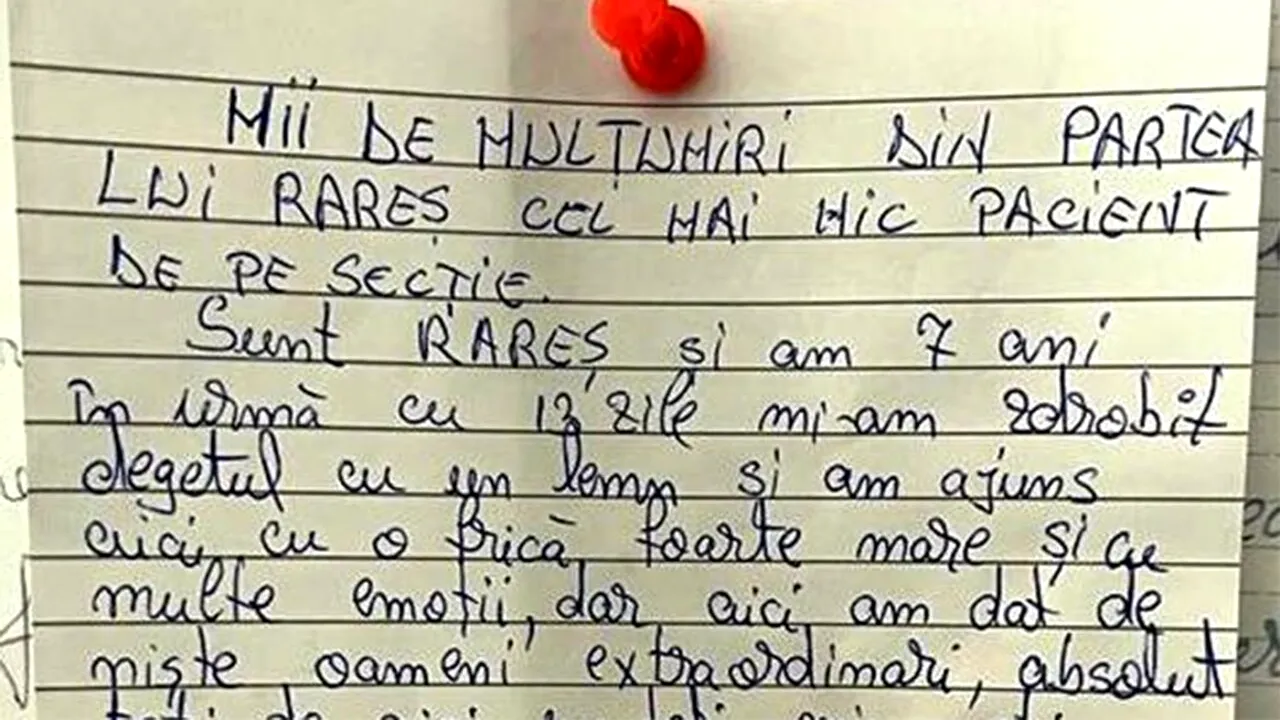 MII DE MULȚUMIRI DIN PARTEA
LUI RARES CEL MAI MIC PACIENT
DE PE SECȚIE.
Sunt RAREȘ și am 7 ani
în urmă cu 13 zile mi-am zdrobit
degetul cu un lemn și am ajuns
aici, cu o frică foarte mare și cu
multe emoții, dar aici am dat de
niște oameni extraordinari, absolut